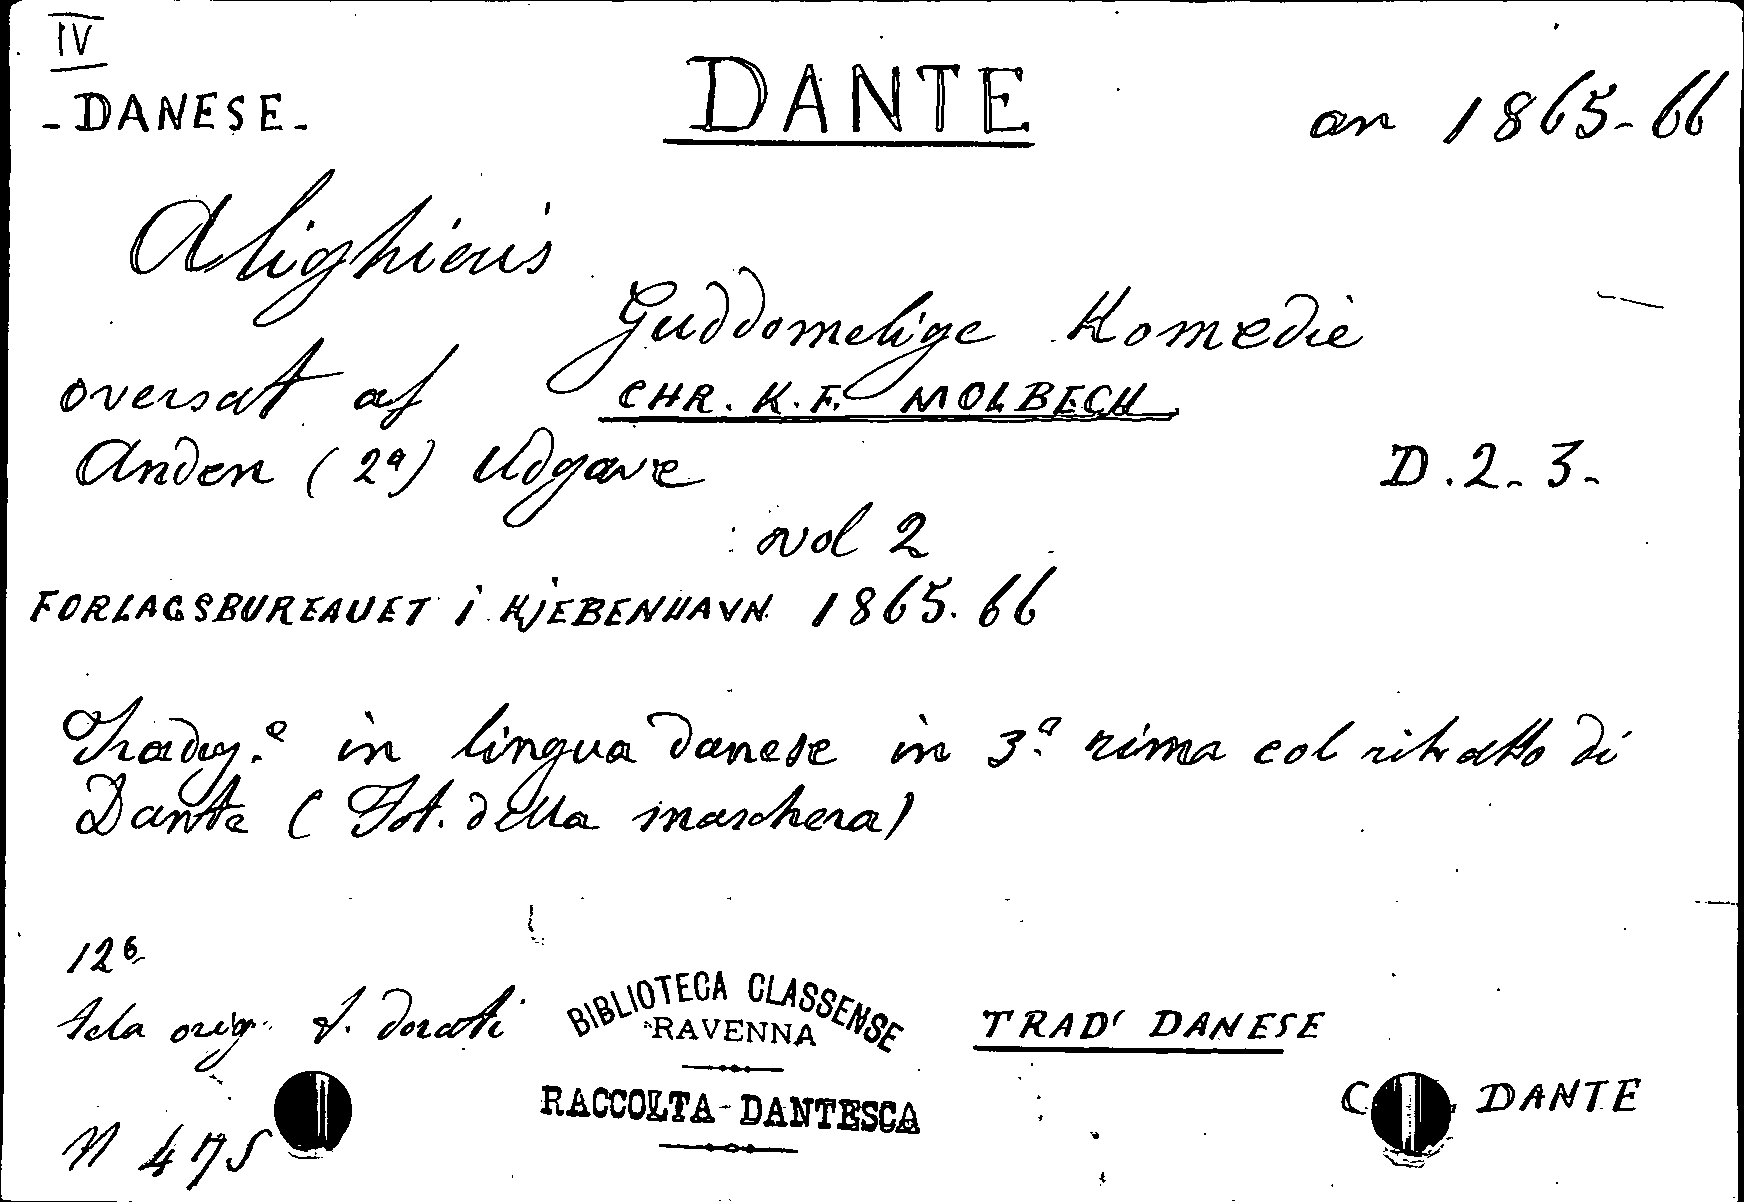 IV
- DANESE - DANTE an 1865-66
Alighieris
Guddomelige Komedie
oversat af CHR. K. F. MOLBECH
Anden (2ª) Udgave D.2-3-
vol 2
FORLAGSBUREAUET i KJEBENHAVN 1865.66
Traduz.e in lingua danese in 3ª rima col ritratto di
Dante (Fot. della maschera)
12º
tela orig. f. dorati
BIBLIOTECA CLASSENSE
RAVENNA
RACCOLTA-DANTESCA
TRAD' DANESE
C DANTE
N 475